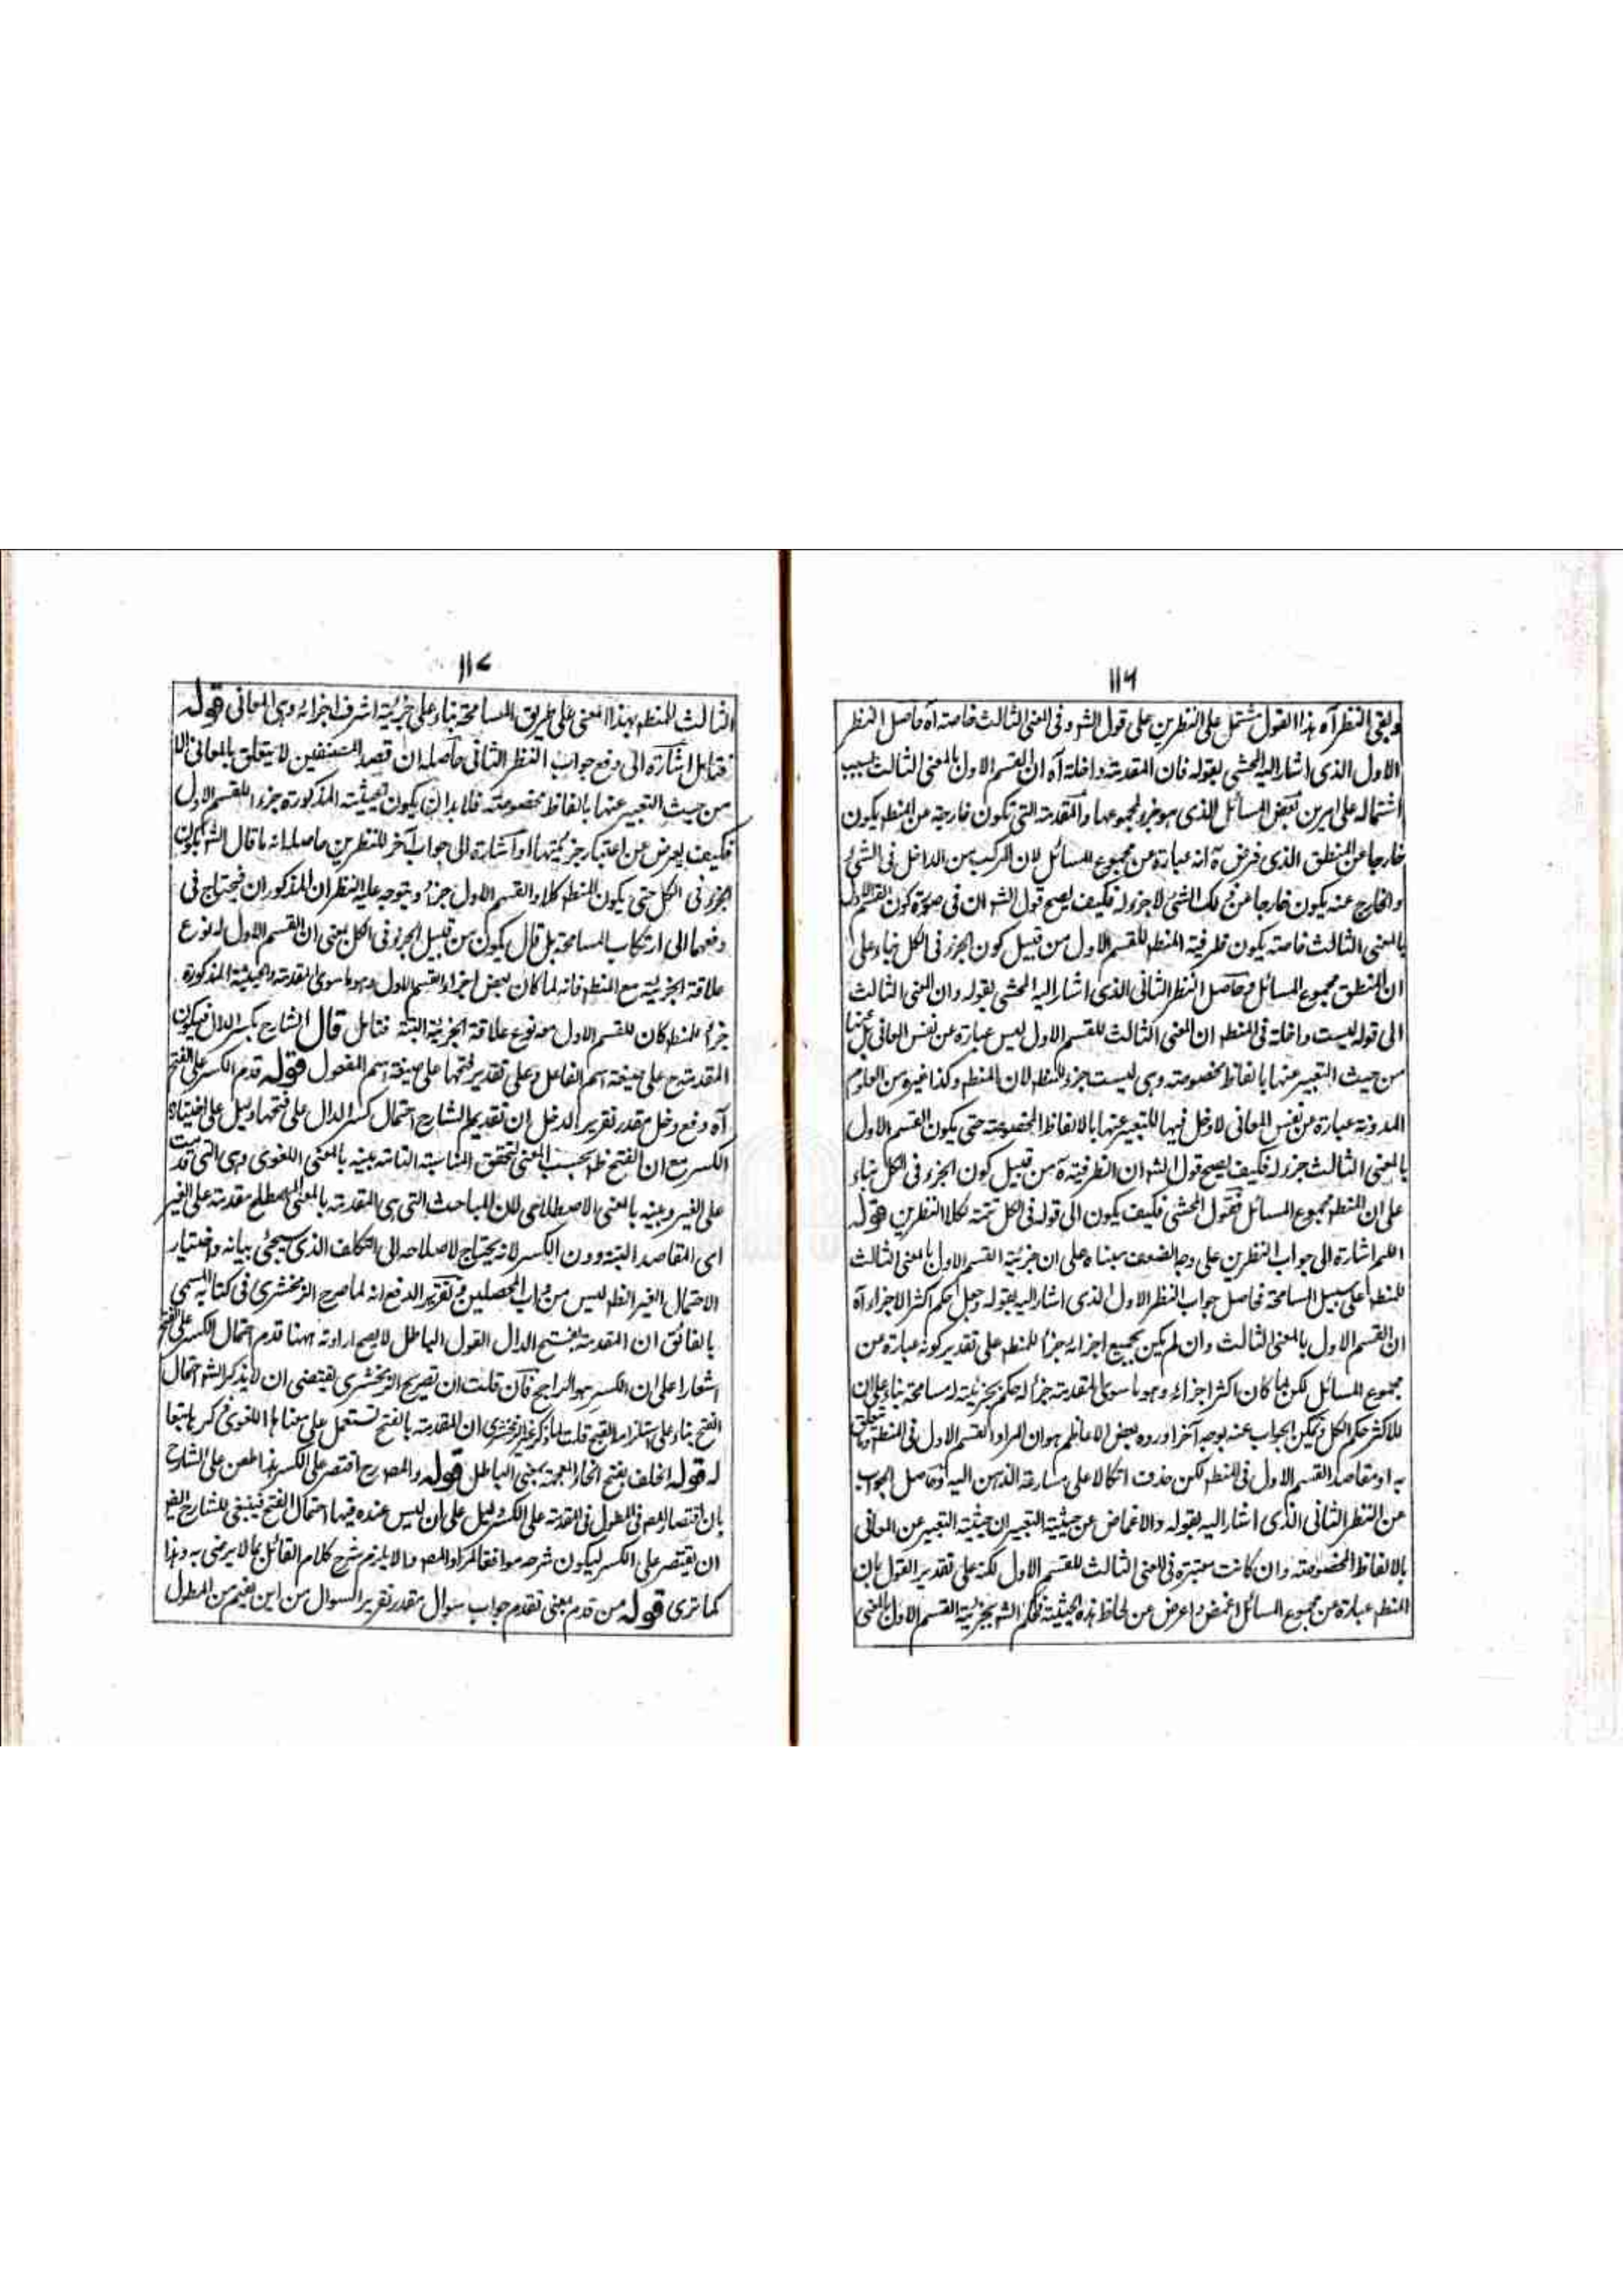 ١١٦
وبقى النظر آه هذا القول مشتمل على النظرين على قول الشر وفى المعنى الثالث خاصته آه حاصل النظر
الاول الذى اشار اليه المحشى بقوله فان المقدمة داخلة آه ان القسم الاول بالمعنى الثالث بسبب
اشتماله على امرين بعض المسائل الذى هو جزء لمجموعها والمقدمة التى تكون خارجية من المنطق يكون
خارجا عن المنطق الذى فرض آنه عبارة عن مجموع المسائل لان المركب من الداخل فى الشئ
والخارج عنه يكون خارجا عن ذلك الشئ لا جزء له فكيف يصح قول الشر ان فى صورة كون القسم الاول
بالمعنى الثالث خاصته يكون ظرفية المنطق للقسم الاول من قبيل كون الجزء فى الكل بناء على
ان المنطق مجموع المسائل وحاصل النظر الثانى الذى اشار اليه المحشى بقوله وان المعنى الثالث
الى قوله ليست داخلة فى المنطق ان المعنى الثالث للقسم الاول ليس عبارة عن نفس المعانى بل عنها
من حيث التعبير عنها بالفاظ مخصوصة وهى ليست جزء للمنطق لان المنطق وكذا غيره من العلوم
المدونة عبارة عن نفس المعانى لا دخل فيها للتعبير عنها بالالفاظ المخصوصة حتى يكون القسم الاول
بالمعنى الثالث جزء له فكيف يصح قول الشر ان الظرفية آه من قبيل كون الجزء فى الكل بناء
على ان المنطق مجموع المسائل فقول المحشى فكيف يكون الى قوله فى الكل تتمة لكلا النظرين قوله
اللهم اشارة الى جواب النظرين على وجه الضعف مبناه على ان جزئية القسم الاول بالمعنى الثالث
للمنطق على سبيل المسامحة فحاصل جواب النظر الاول الذى اشار اليه بقوله وجعل حكم اكثر الاجزاء آه
ان القسم الاول بالمعنى الثالث وان لم يكن بجميع اجزائه جزأ للمنطق على تقدير كونه عبارة عن
مجموع المسائل لكن لما كان اكثر اجزاءه وهو ما سوى المقدمة جزأ له حكم بجزئيته مسامحة بناء على ان
للاكثر حكم الكل ويمكن الجواب عنه بوجه آخر اورده بعض الاعاظم هو ان المراد القسم الاول فى المنطق وما يتعلق
به او مقاصد القسم الاول فى المنطق لكن حذف اتكالا على مسارعة الذهن اليه وحاصل الجواب
عن النظر الثانى الذى اشار اليه بقوله والاغماض عن حيثية التعبير ان حيثية التعبير عن المعانى
بالالفاظ المخصوصة وان كانت معتبرة فى المعنى الثالث للقسم الاول لكنه على تقدير القول بان
المنطق عبارة عن مجموع المسائل اغمض واعرض عن لحاظ هذه الحيثية فحكم الشر بجزئية القسم الاول بالمعنى
١١٧
الثالث للمنطق بهذا المعنى على طريق المسامحة بناء على جزئية اشرف اجزائه وهى المعانى قوله
فتامل اشارة الى دفع جواب النظر الثانى حاصله ان قصد المصنفين لا يتعلق بالمعانى الا
من حيث التعبير عنها بالفاظ مخصوصة فلا بد ان يكون الحيثية المذكورة جزء للقسم الاول
فكيف يعرض عن اعتبار جزئيتها او اشارة الى جواب آخر للنظرين حاصله انه ما قال الشر بكون
الجزء فى الكل حتى يكون المنطق كلا والقسم الاول جزأ ويتوجه عليه النظر ان المذكوران فيحتاج فى
دفعهما الى ارتكاب المسامحة بل قال يكون من قبيل الجزء فى الكل بمعنى ان القسم الاول له نوع
علاقة الجزئية مع المنطق فانه لما كان بعض اجزاء القسم الاول وهو ما سوى المقدمة والحيثية المذكورة
جزأ للمنطق كان للقسم الاول معه نوع علاقة الجزئية البتة فتامل قال الشارح بكسر الدال فيكون
المقدمة ح على صيغة اسم الفاعل وعلى تقدير فتحها على صيغة اسم المفعول قوله قدم الكسر على الفتح
آه دفع دخل مقدر تقرير الدخل ان تقديم الشارح احتمال كسر الدال على فتحها دليل على اختياره
الكسر مع ان الفتح ظ بحسب المعنى لتحقق المناسبة التامة بينه بالمعنى اللغوى وهى التى قدمت
على الغير وبينه بالمعنى الاصطلاحى لان المباحث التى هى المقدمة بالمعنى المصطلح مقدمة على الغير
اى المقاصد البتة دون الكسر لانه يحتاج لاصلاحه الى التكلف الذى سيجئ بيانه واختيار
الاحتمال الغير الظ ليس من داب المحصلين وتقرير الدفع انه لما صرح الزمخشرى فى كتابه المسمى
بالفائق ان المقدمة بفتح الدال القول الباطل لا يصح ارادته ههنا قدم احتمال الكسر على الفتح
اشعارا على ان الكسر هو الراجح فان قلت ان تصريح الزمخشرى يقتضى ان لا يذكر الشر احتمال
الفتح بناء على استلزامه القبح قلت لما ذكر غير الزمخشرى ان المقدمة بالفتح تستعمل على معناها اللغوى ذكرها تبعا
له قوله خلف بفتح الخاء المعجمة بمعنى الباطل قوله والمص رح اقتصر على الكسر هذا طعن على الشارح
بان اقتصار المص فى المطول فى المقدمة على الكسر دليل على ان ليس عنده فيها احتمال الفتح فينبغى للشارح ايض
ان يقتصر على الكسر ليكون شرحه موافقا لمراد المص والا يلزم شرح كلام القائل بما لا يرضى به وهذا
كما ترى قوله من قدم بمعنى تقدم جواب سوال مقدر تقرير السوال من اين يفهم من المطول